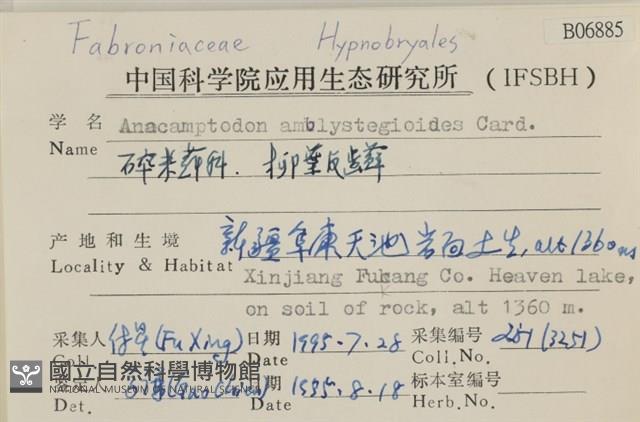 Fabroniaceae Hypnobryales B06885
中国科学院应用生态研究所 (IFSBH)
学名 Anacamptodon amblystegioides Card.
Name 碎米藓科. 柳葉反齿藓
产地和生境 新疆阜康天池岩面土生, alt 1360 m
Locality & Habitat Xinjiang Fukang Co. Heaven lake,
on soil of rock, alt 1360 m.
采集人 (Fu Xing) 日期 1995.7.28 采集编号 251 (3251)
Coll. Date Coll.No.
國立自然科學博物館
NATIONAL MUSEUM OF NATURAL SCIENCE
日期 1995.8.18 标本室编号
Det. Date Herb.No.